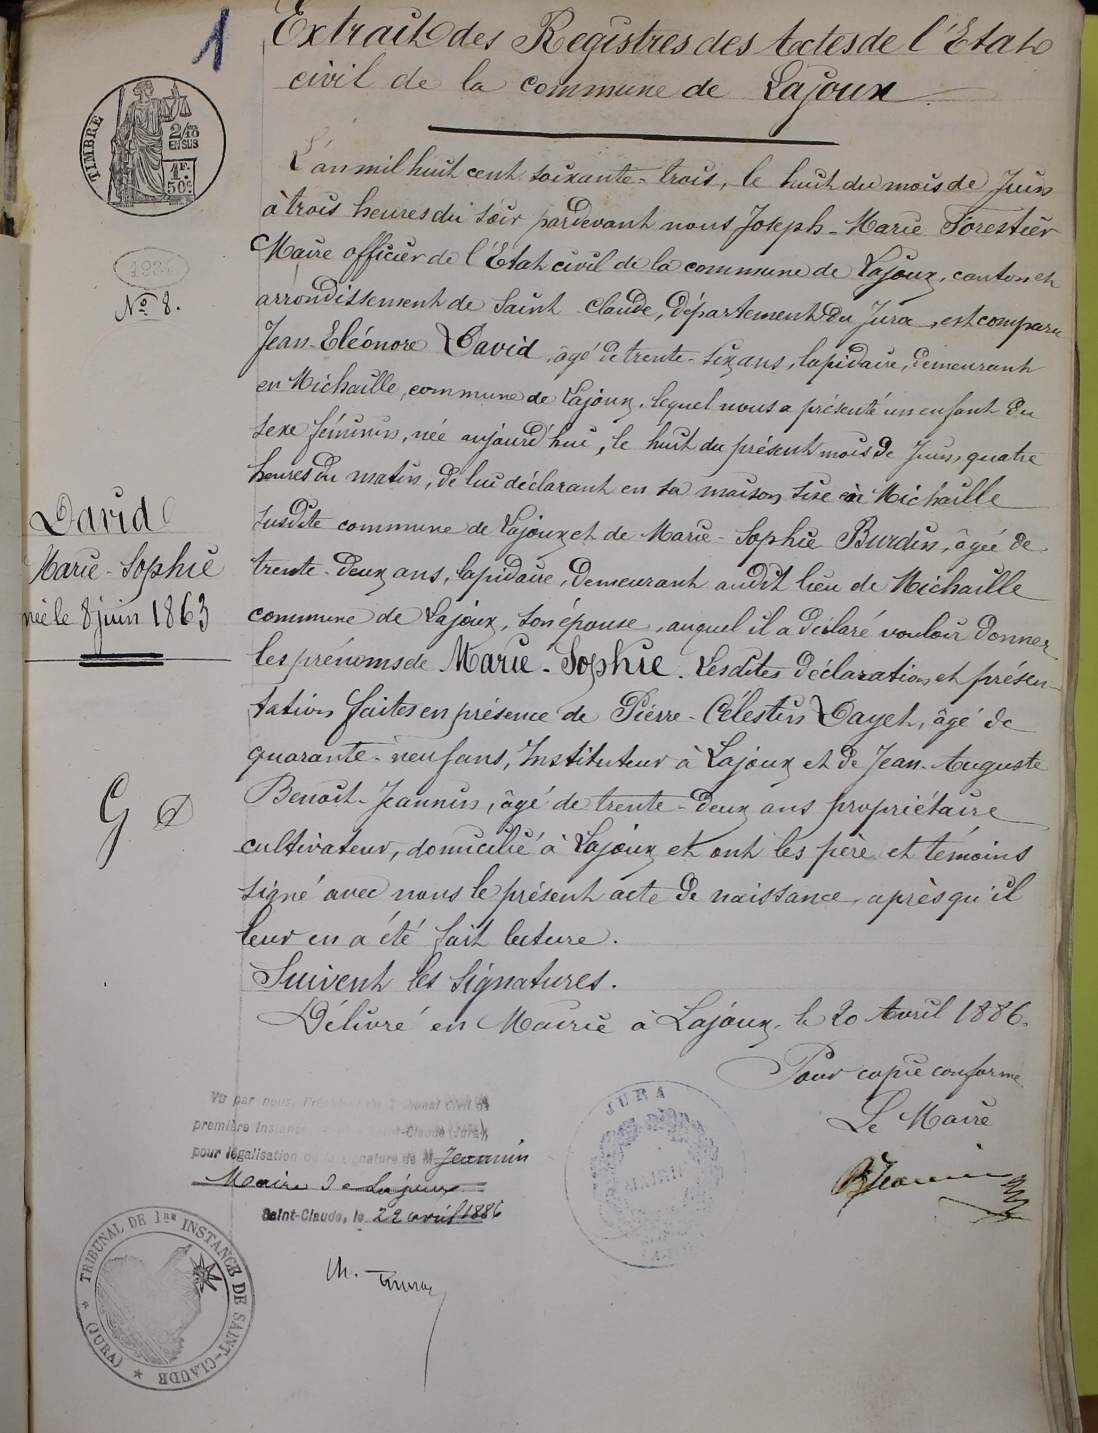 1
Extrait des Registres des Actes de l'Etat
civil de la commune de Lajoux
TIMBRE
2/10
EN SUS
1 F.
50 c.
L'an mil huit cent soixante-trois, le huit du mois de Juin
à trois heures du soir pardevant nous Joseph-Marie Forestier
Maire officier de l'Etat civil de la commune de Lajoux, canton et
Nº 8.
arrondissement de Saint Claude, département du Jura, est comparu
Jean-Eléonore David, âgé de trente-six ans, lapidaire, demeurant
en Michaille, commune de Lajoux, lequel nous a présenté un enfant du
sexe féminin, née aujourd'hui, le huit du présent mois de Juin, quatre
heures du matin, de lui déclarant en sa maison sise en Michaille
susdite commune de Lajoux et de Marie-Sophie Burdin, âgée de
trente-deux ans, lapidaire, demeurant audit lieu de Michaille
commune de Lajoux, son épouse, auquel il a déclaré vouloir donner
les prénoms de Marie-Sophie. Lesdites déclaration et présen-
tation faites en présence de Pierre-Célestin Dayet, âgé de
quarante-neuf ans, Instituteur à Lajoux et de Jean-Auguste
Benoit-Jeannin, âgé de trente-deux ans propriétaire
cultivateur, domicilié à Lajoux et ont les père et témoins
signé avec nous le présent acte de naissance, après qu'il
leur en a été fait lecture.
Suivent les signatures.
Délivré en Mairie à Lajoux, le 20 Avril 1886.
David
Marie-Sophie
née le 8 juin 1863
G D
Pour copie conforme
Le Maire
Jeannin
Vu par nous, Président du Tribunal Civil de
première instance Saint-Claude (Jura),
pour légalisation de la signature de M. Jeannin
Maire de Lajoux
Saint-Claude, le 22 avril 1886
JURA
MAIRIE
TRIBUNAL DE 1ERE INSTANCE DE SAINT-CLAUDE
(JURA)